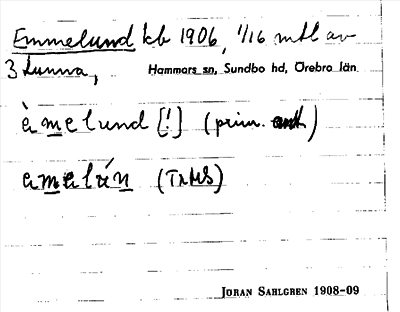 Emmelund kb 1906, 1/16 mtl av
3 Lunna,
Hammars sn, Sundbo hd, Örebro län
èmelund [!] (prim.
JORAN SAHLGREN 1908-09